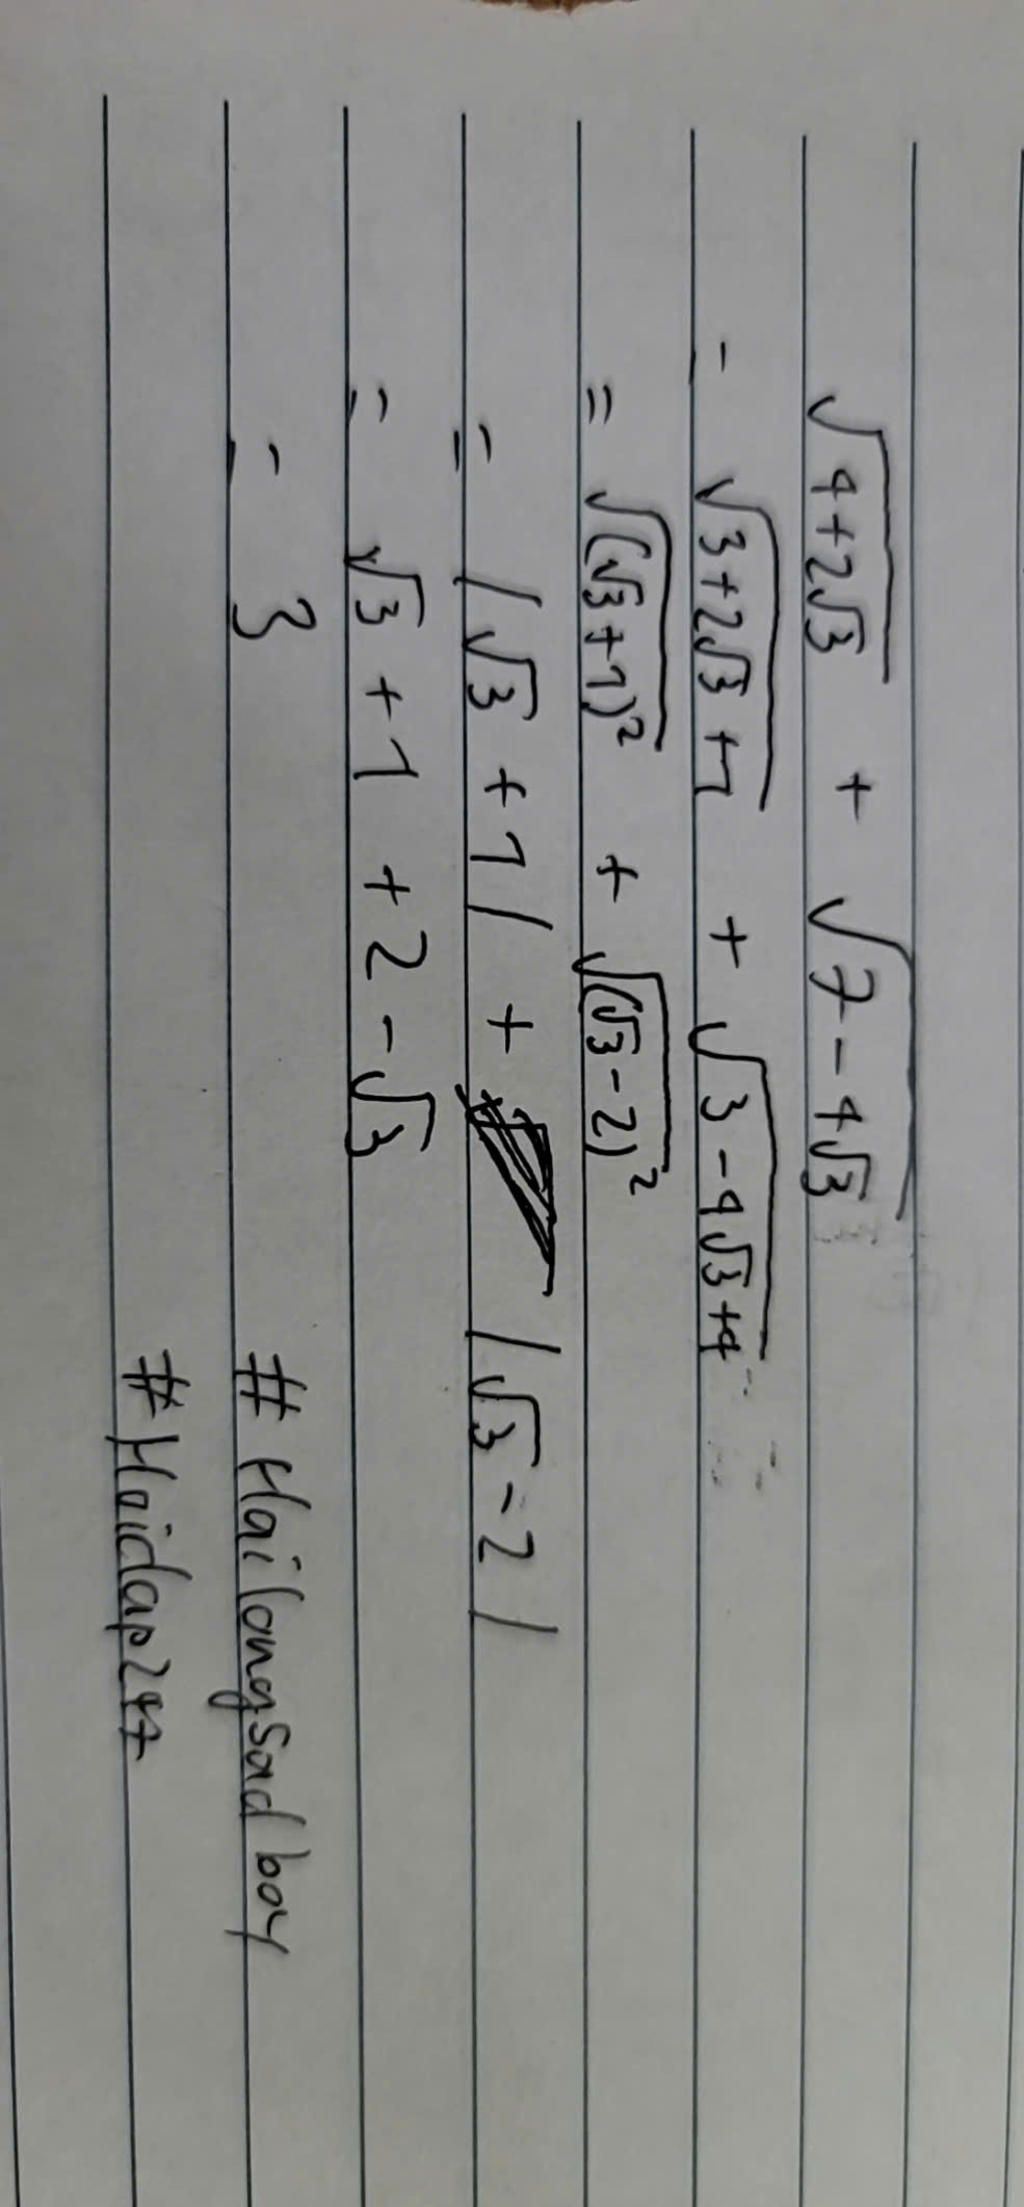 √(4+2√3) + √(7-4√3)
= √(3+2√3+1) + √(3-4√3+4)
= √((√3+1)²) + √((√3-2)²)
= |√3+1| + |√3-2|
= √3+1+2-√3
= 3
# Hailongsadboy
# Hoidap247